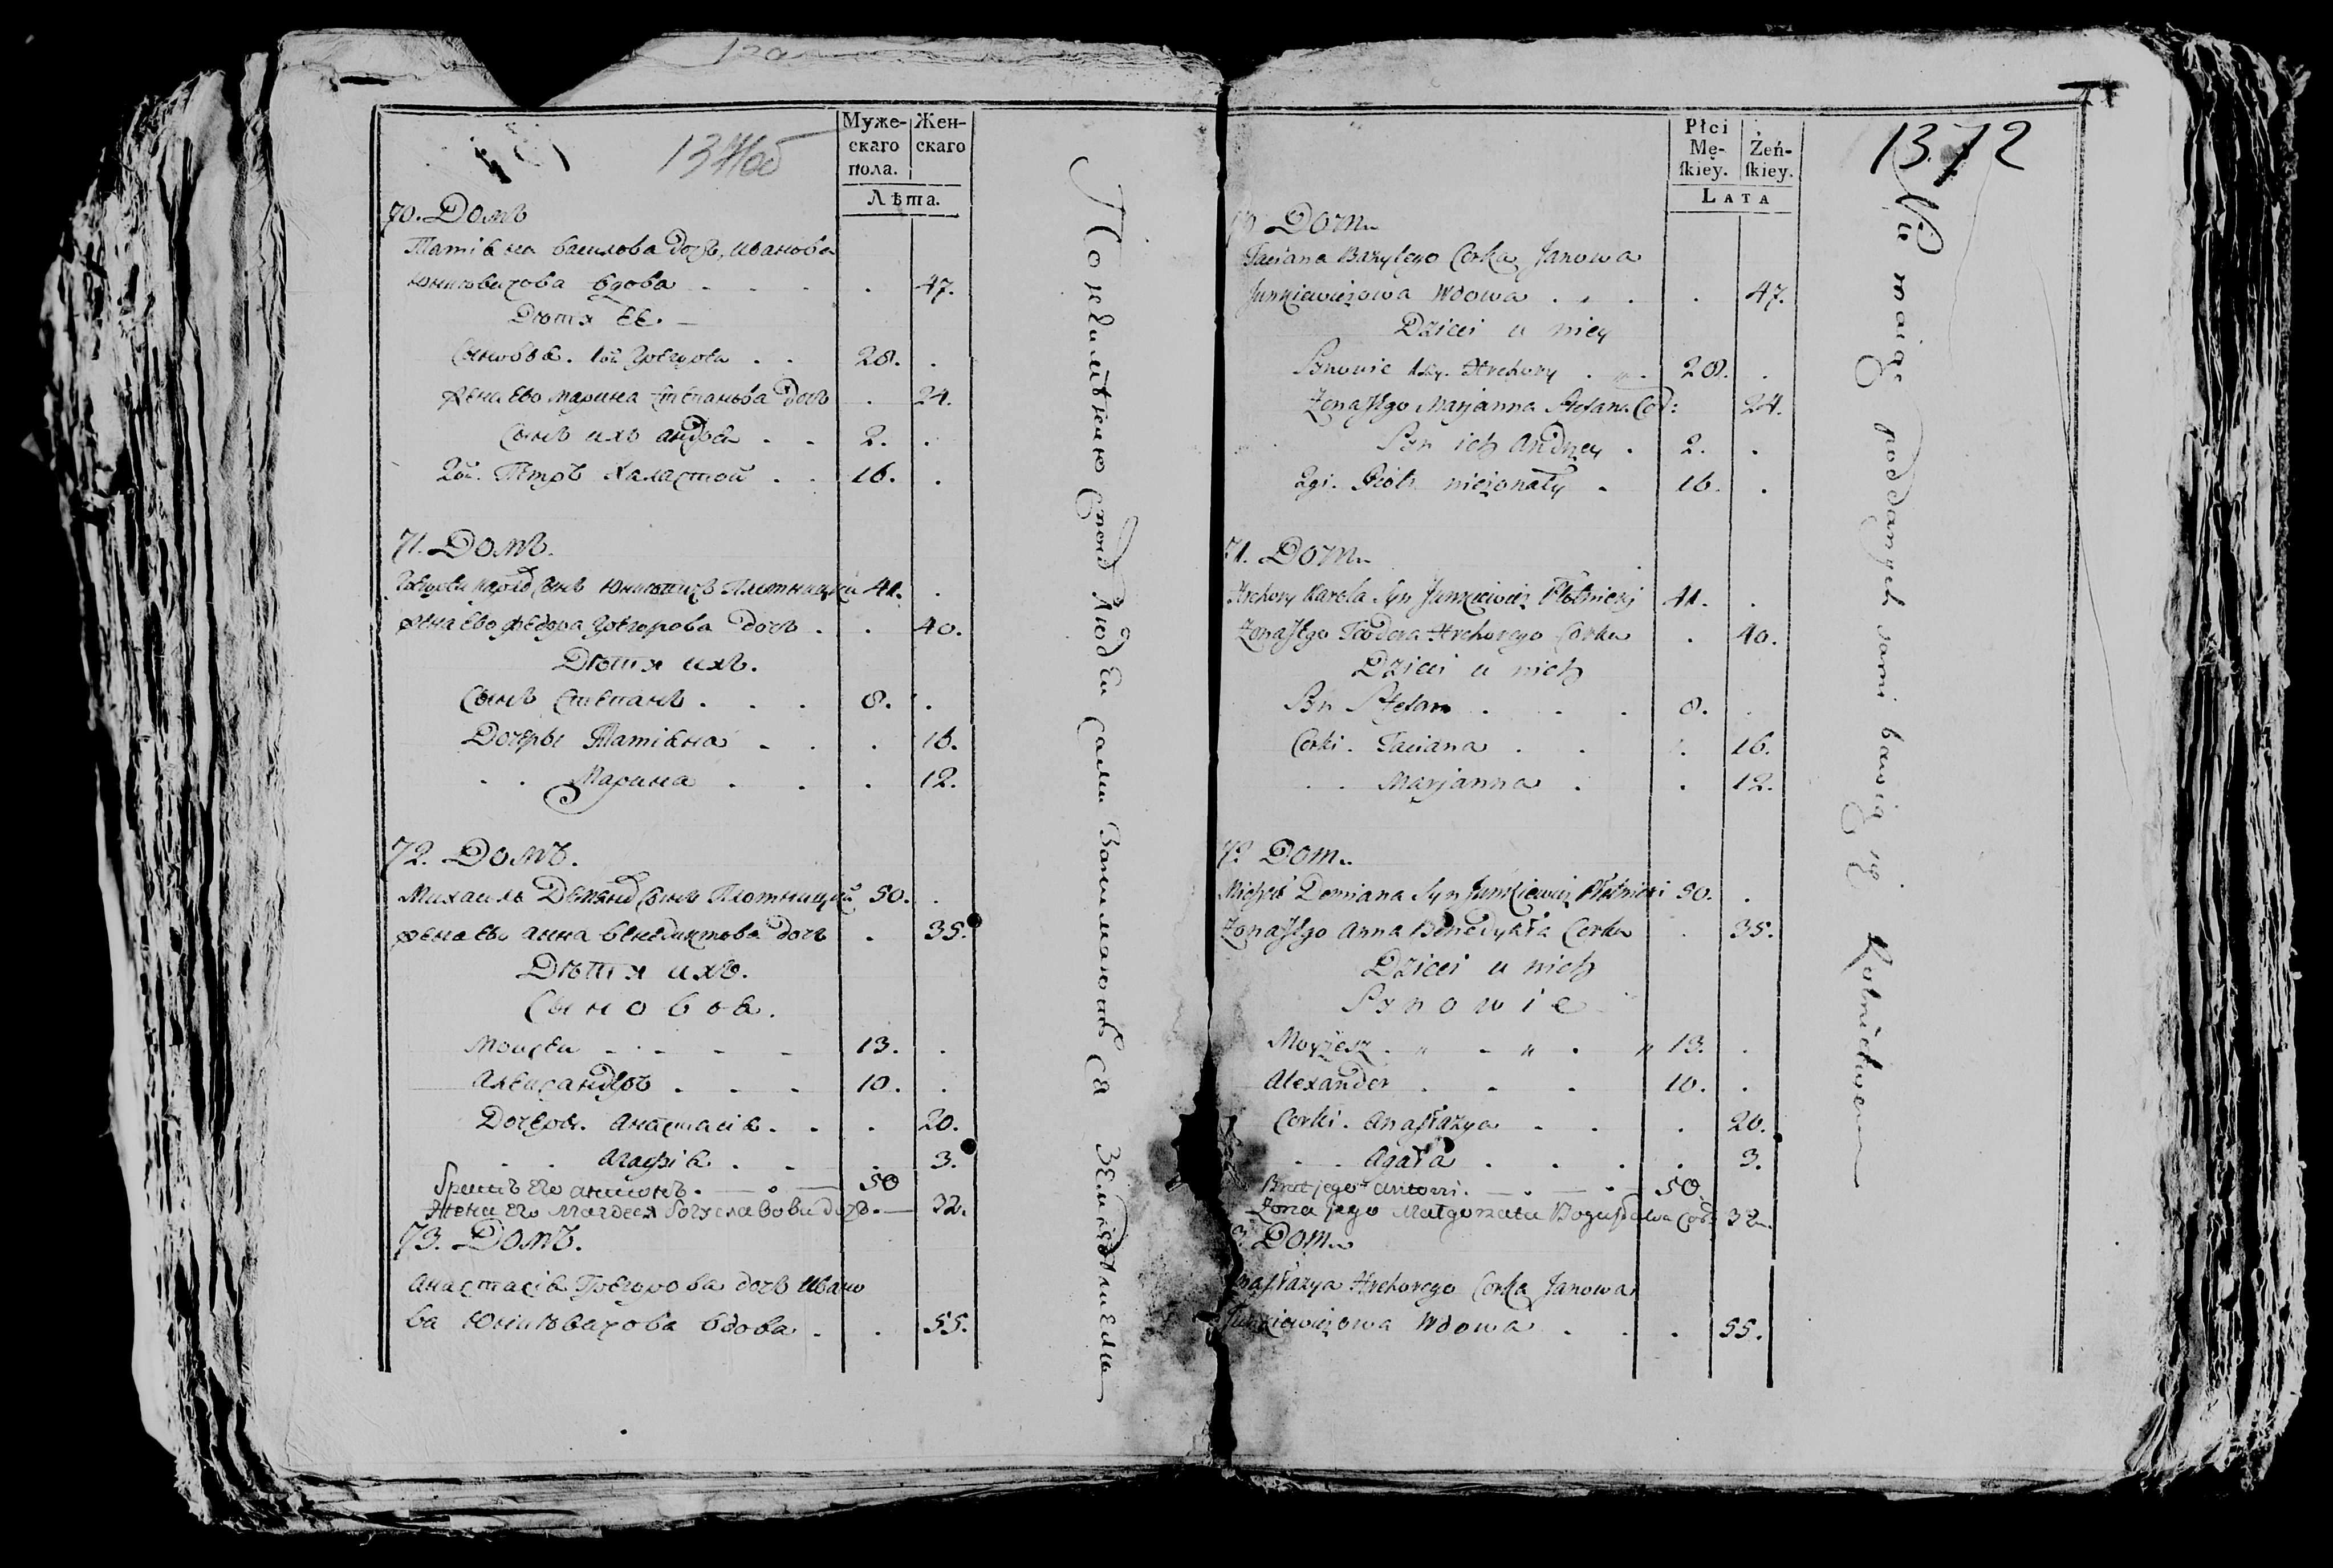 Муже-
скаго
пола.
Жен-
скаго
Лѣта.
70. Домъ
Татіана василова дочь, иванова
юнкевичова вдова . . . . 47.
Дѣти ее.
Сыновья. 1ой Григорей . . 28. .
жена его марина степанова дочь . 24.
Сынъ ихъ андрей . . 2. .
2ой. Петръ халастой . . 16. .
71. Домъ.
Григорей карол. сынъ юнкевичъ Плотницкій 41. .
жена его федора григорова дочь . . 40.
Дѣти ихъ.
Сынъ степанъ . . . 8. .
Дочеры Татіана . . . 16.
. . Марина . . . 12.
72. Домъ.
Михаилъ Демян. сынъ Плотницкій 50. .
жена его анна бенедиктова дочь . 35.
Дѣти ихъ.
Сыновья.
Моисей . . . . 13. .
Александръ . . . 10. .
Дочеры. анастасія . . . 20.
. . агафія . . . 3.
братъ его антонъ. — . — 50
жена его богуславова дочь. — 32.
73. Домъ.
анастасія Григорова дочь ивано
ва юнкевичова вдова . . 55.
По неимѣнию людей сами занимаются земледелиемъ
1372
Płci
Mę-
ſkiey.
Żeń-
ſkiey.
LATA
Dom.
Taciana Bazylego Corka, Janowa
Junkiewiczowa Wdowa . . . . 47.
Dzieci u niey
Synowie 1szy. Hrehory . . . 28. .
Zona Jego Marjanna Stefana Cor: 24.
Syn ich Andrzey . 2. .
2gi. Piotr nieżonaty . 16. .
71. Dom.
Hrehory Karola Syn Junkiewicz Płotnicki 41. .
Zona Jego Teodora Hrehorego Corka . 40.
Dzieci u nich
Syn Stefan . . . 8. .
Corki. Taciana . . . 16.
. . Marjanna . . 12.
72 Dom.
Michał Demiana Syn Junkiewicz Płotnicki 50. .
Zona Jego Anna Benedykta Corka . 35.
Dzieci u nich
Synowie
Moyżesz . „ - „ . „ 13. .
Alexander . . . 10. .
Corki. Anaſtazya . . . 20.
. . Agata . . . . 3.
Brat jego Antoni. — . — . 50.
Zona jego Małgorzata Bogusława Cor: 32.
3. Dom.
naſtazya Hrehorego Corka Janowa
Junkiewiczowa Wdowa . . . . 55.
Nie maiąc poddanych sami bawią się Rolnictwem